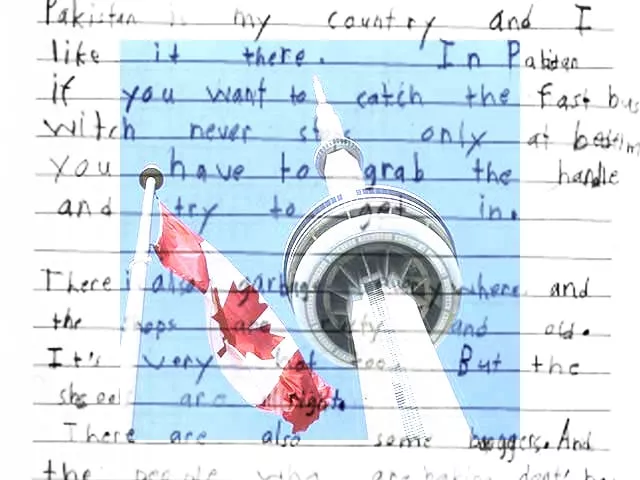 Pakistan is my country and I
like it there. In Pakistan
if you want to catch the fast bus
witch never only at
you have to grab the handle
and try to get in.
There is also garbage where and
the shops are and old.
It's very hot too. But the
are alright.
There are also some beggers. And
the people who dont'